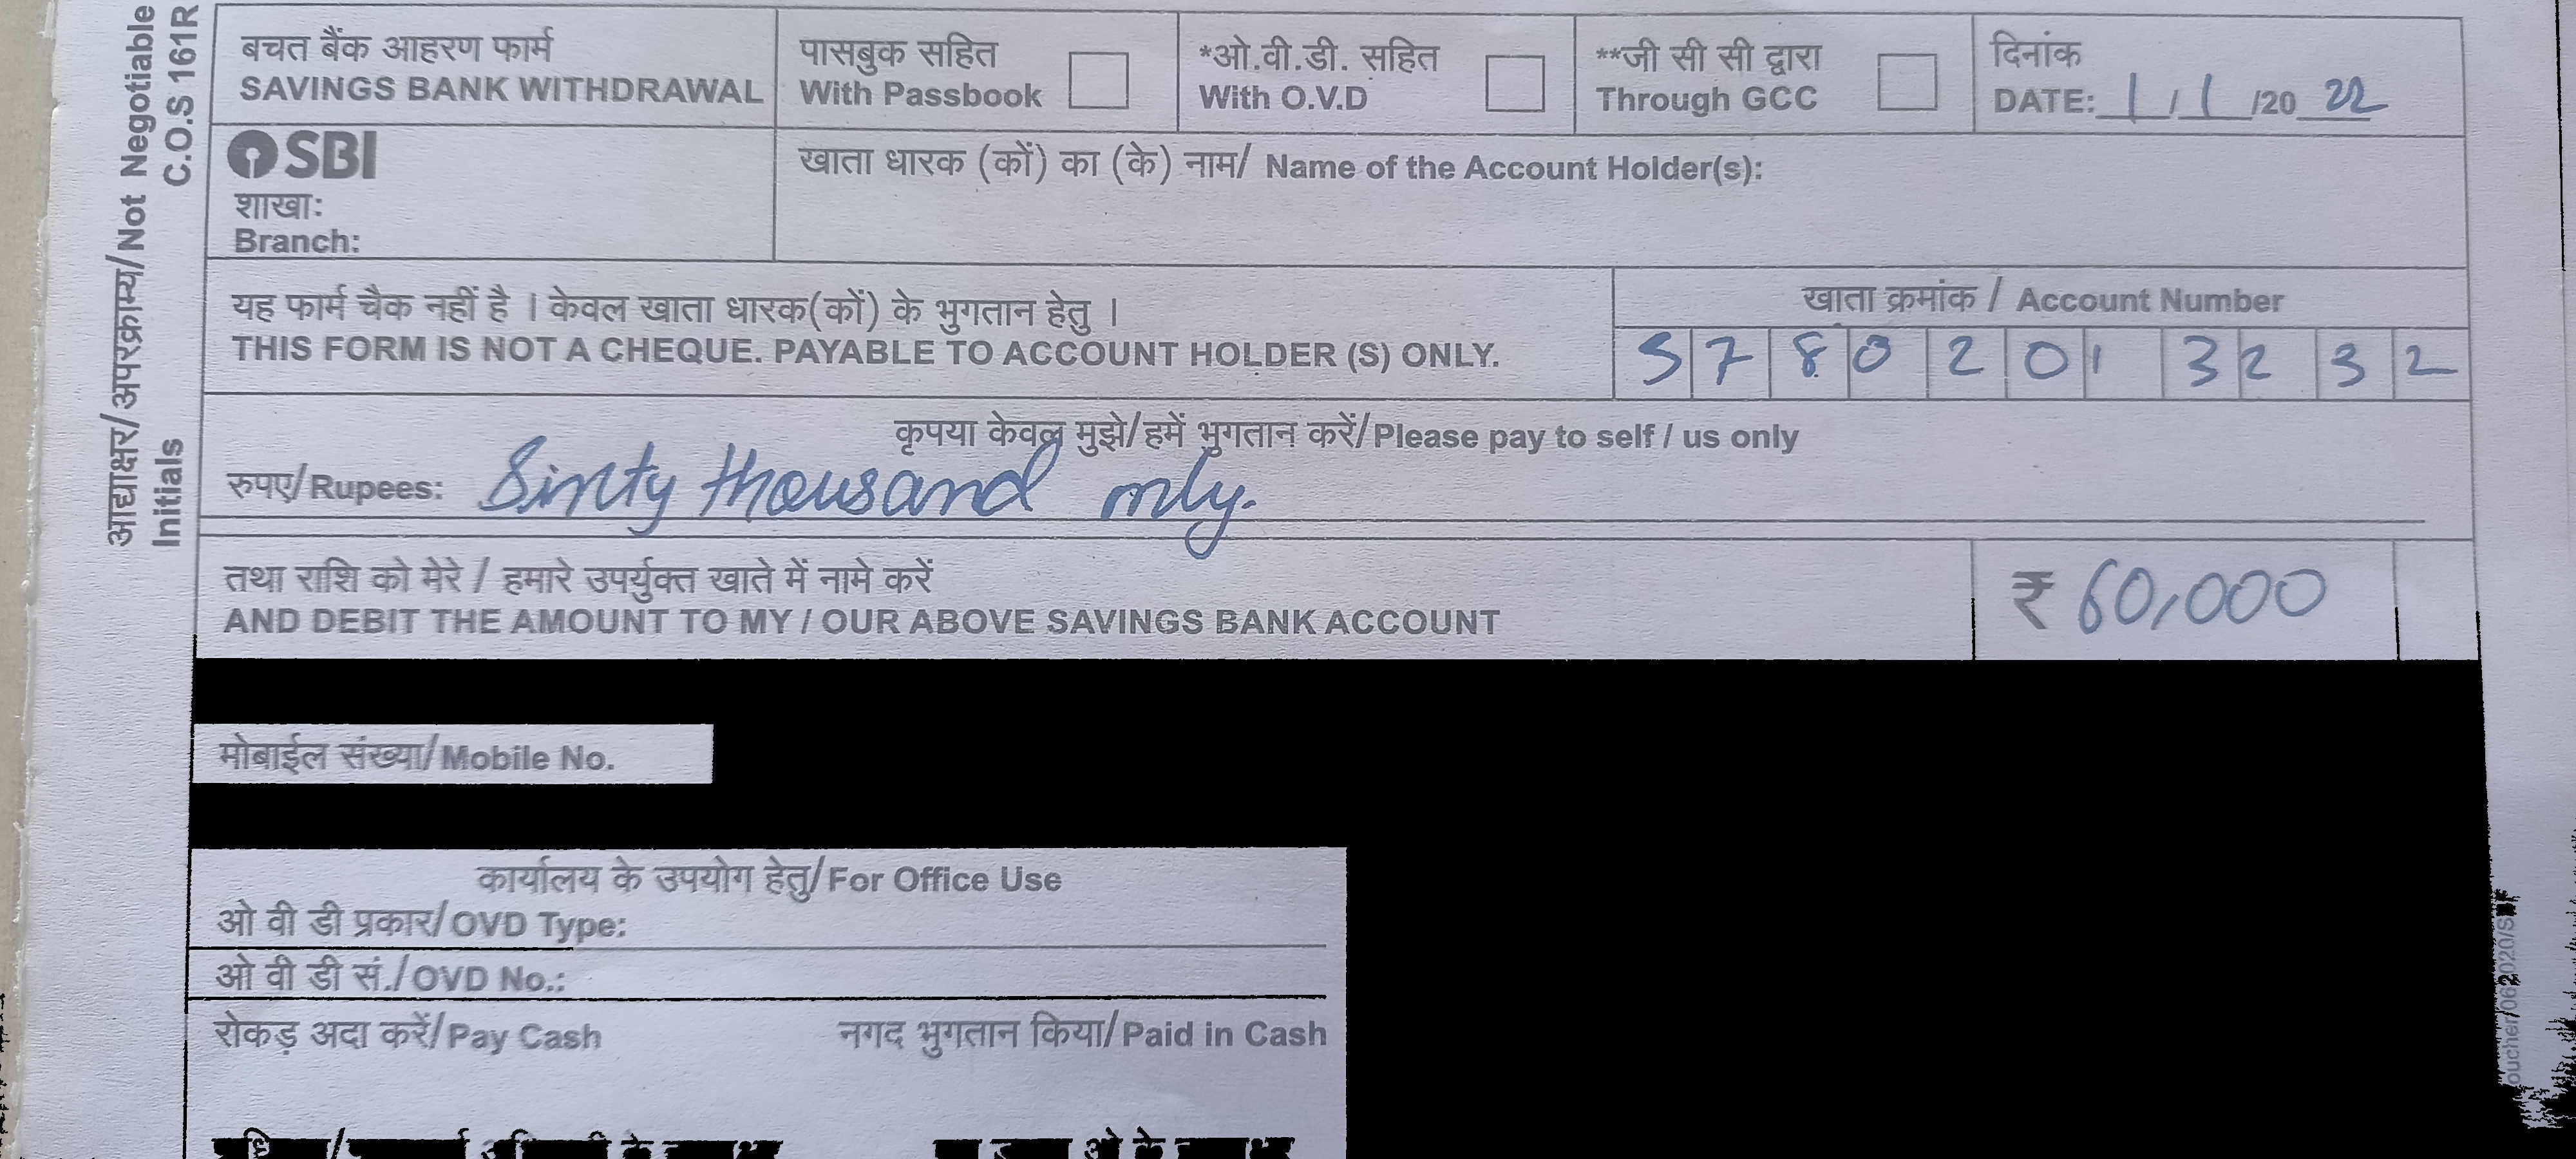 बचत बैंक आहरण फार्म
SAVINGS BANK WITHDRAWAL
पासबुक सहित
With Passbook
*ओ.वी.डी. सहित
With O.V.D
**जी सी सी द्वारा
Through GCC
दिनांक
DATE: 1 / 1 /20 22
SBI
शाखाः
Branch:
खाता धारक (कों) का (के) नाम/ Name of the Account Holder(s):
यह फार्म चैक नहीं है । केवल खाता धारक(कों) के भुगतान हेतु ।
THIS FORM IS NOT A CHEQUE. PAYABLE TO ACCOUNT HOLDER (S) ONLY.
खाता क्रमांक / Account Number
5 7 8 0 2 0 1 3 2 3 2
कृपया केवल मुझे/हमें भुगतान करें/Please pay to self / us only
रुपए/Rupees: Sixty thousand only.
तथा राशि को मेरे / हमारे उपर्युक्त खाते में नामे करें
AND DEBIT THE AMOUNT TO MY / OUR ABOVE SAVINGS BANK ACCOUNT
₹ 60,000
मोबाईल संख्या/Mobile No.
कार्यालय के उपयोग हेतु/For Office Use
ओ वी डी प्रकार/OVD Type:
ओ वी डी सं./OVD No.:
रोकड़ अदा करें/Pay Cash
नगद भुगतान किया/Paid in Cash
आद्याक्षर/अपरक्राम्य/Not Negotiable
Initials C.O.S 161R